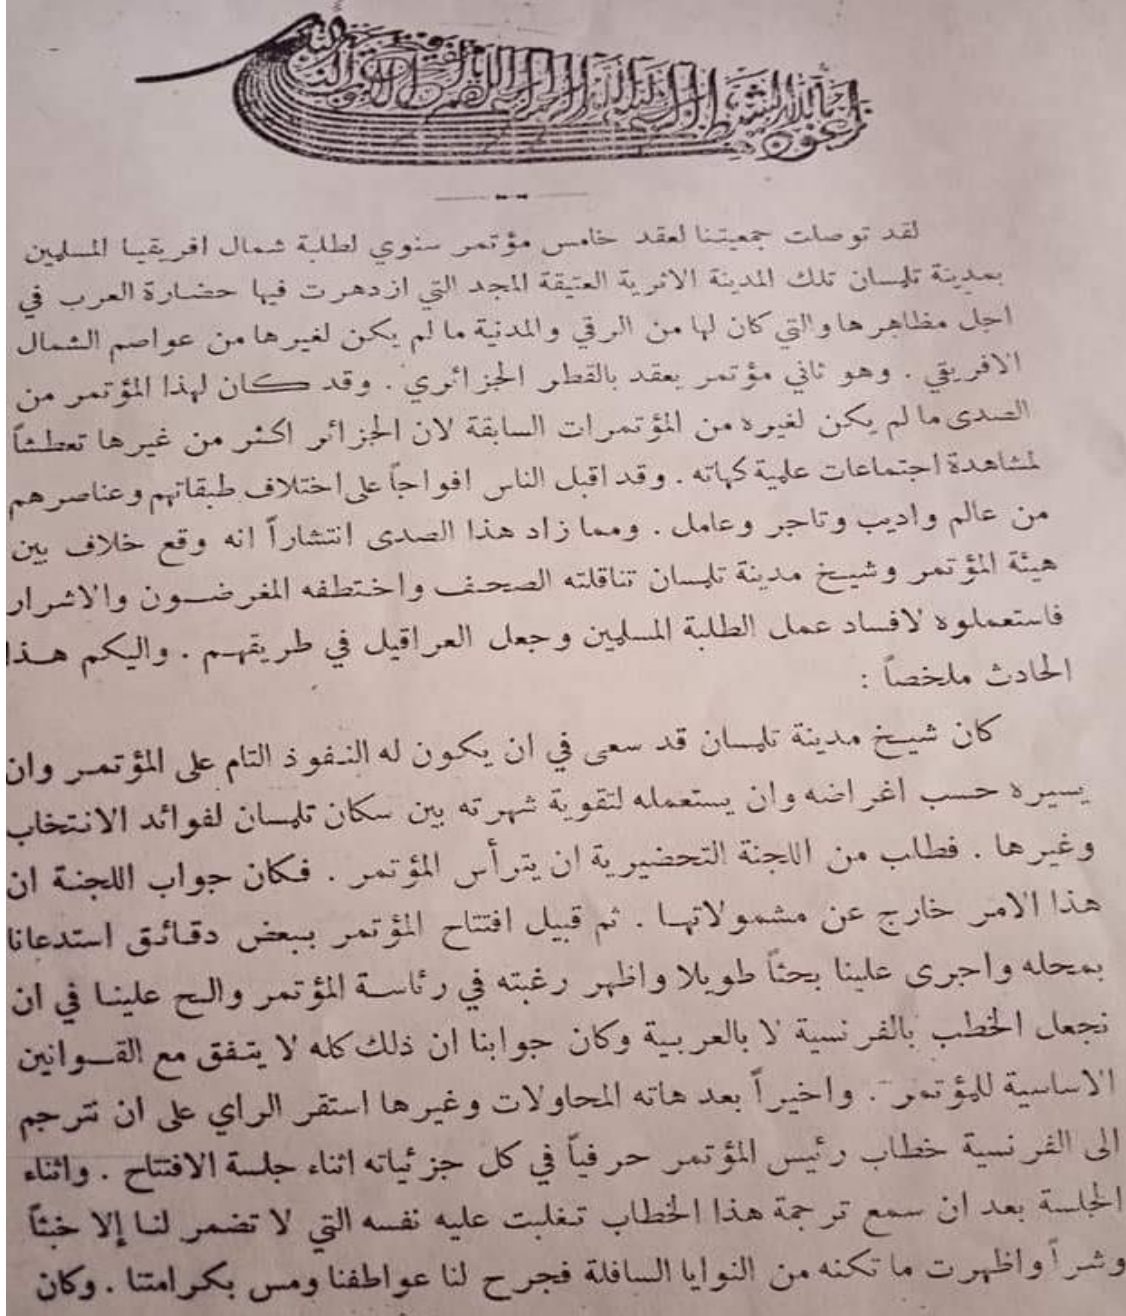 لقد توصلت جمعيتنا لعقد خامس مؤتمر سنوي لطلبة شمال افريقيا المسلمين
بمدينة تلمسان تلك المدينة الاثرية العتيقة المجد التي ازدهرت فيها حضارة العرب في
اجل مظاهرها والتي كان لها من الرقي والمدنية ما لم يكن لغيرها من عواصم الشمال
الافريقي . وهو ثاني مؤتمر يعقد بالقطر الجزائري . وقد كان لهذا المؤتمر من
الصدى ما لم يكن لغيره من المؤتمرات السابقة لان الجزائر اكثر من غيرها تعطشاً
لمشاهدة اجتماعات علمية كهاته . وقد اقبل الناس افواجاً على اختلاف طبقاتهم وعناصرهم
من عالم واديب وتاجر وعامل . ومما زاد هذا الصدى انتشاراً انه وقع خلاف بين
هيئة المؤتمر وشيخ مدينة تلمسان تناقلته الصحف واختطفه المغرضون والاشرار
فاستعملوه لافساد عمل الطلبة المسلمين وجعل العراقيل في طريقهم . واليكم هذا
الحادث ملخصاً :
كان شيخ مدينة تلمسان قد سعى في ان يكون له النفوذ التام على المؤتمر وان
يسيره حسب اغراضه وان يستعمله لتقوية شهرته بين سكان تلمسان لفوائد الانتخاب
وغيرها . فطلب من اللجنة التحضيرية ان يترأس المؤتمر . فكان جواب اللجنة ان
هذا الامر خارج عن مشمولاتها . ثم قبيل افتتاح المؤتمر ببعض دقائق استدعانا
بمحله واجرى علينا بحثاً طويلا واظهر رغبته في رئاسة المؤتمر والح علينا في ان
نجعل الخطب بالفرنسية لا بالعربية وكان جوابنا ان ذلك كله لا يتفق مع القوانين
الاساسية للمؤتمر . واخيراً بعد هاته المحاولات وغيرها استقر الراي على ان تترجم
الى الفرنسية خطاب رئيس المؤتمر حرفياً في كل جزئياته اثناء جلسة الافتتاح . واثناء
الجلسة بعد ان سمع ترجمة هذا الخطاب تغلبت عليه نفسه التي لا تضمر لنا إلا خبثاً
وشراً واظهرت ما تكنه من النوايا السافلة فجرح لنا عواطفنا ومس بكرامتنا . وكان